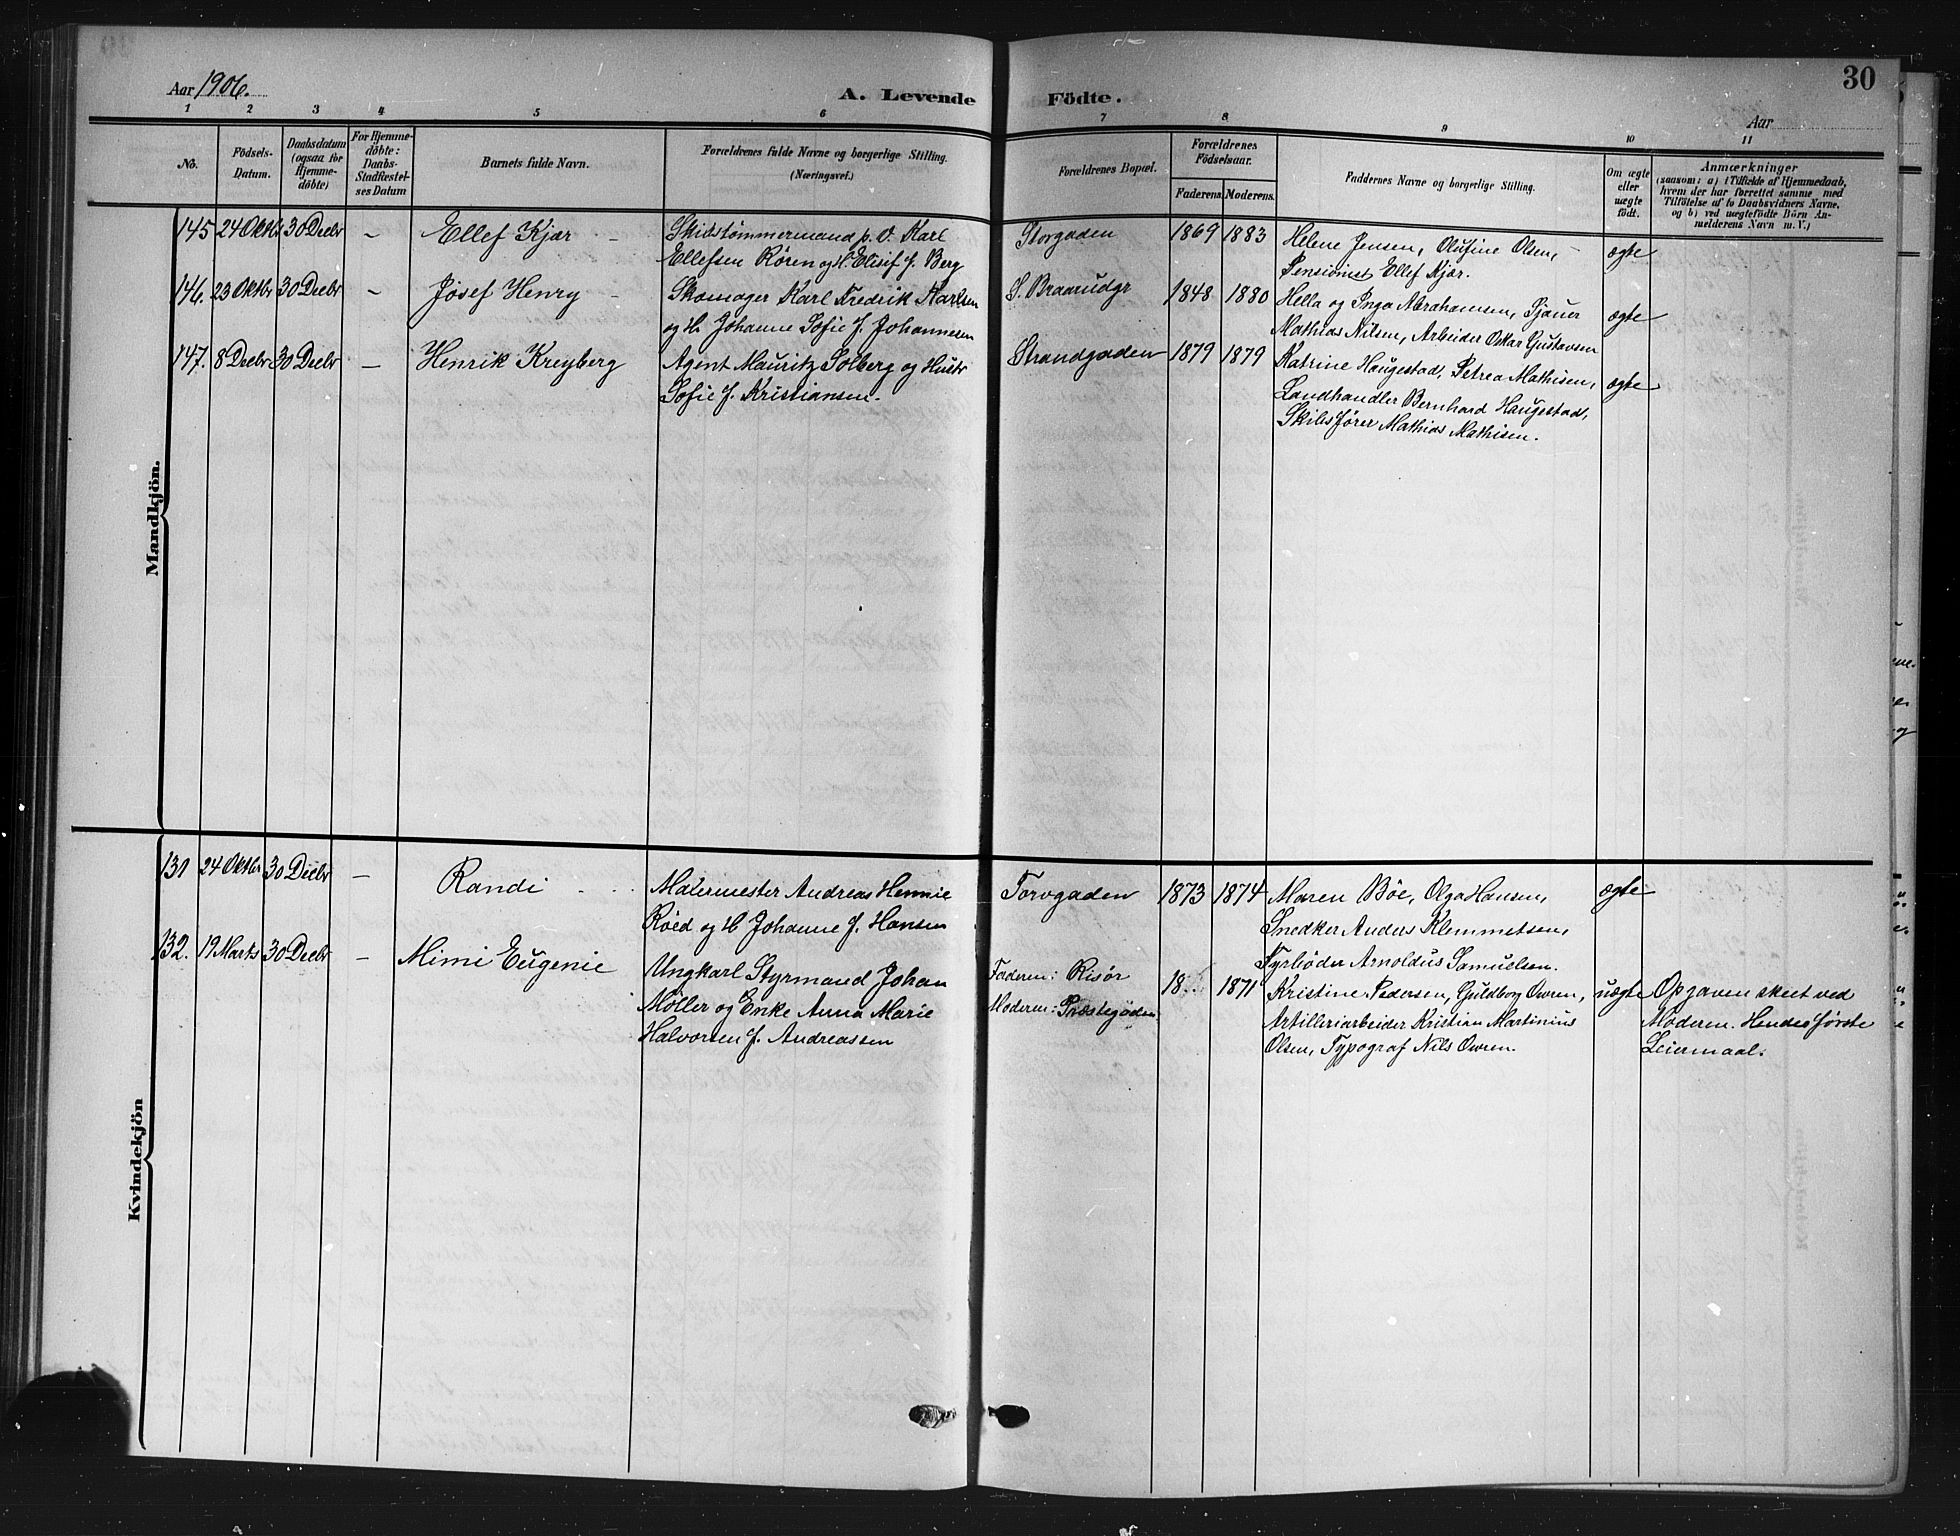 30
Aar 1906.
A. Levende Födte.
Aar
1 2 3 4 5 6 7 8 9 10 11
No.
Födsels-
Datum.
Daabsdatum
(ogsaa for
Hjemme-
döbte)
For Hjemme-
döbte:
Daabs-
Stadfæstel-
ses Datum
Barnets fulde Navn.
Forældrenes fulde Navne og borgerlige Stilling.
(Næringsvei.)
Forældrenes Bopæl.
Forældrenes
Födselsaar.
Faderens. Moderens.
Faddernes Navne og borgerlige Stilling.
Om ægte
eller
uægte
födt.
Anmærkninger
(saasom: a) i Tilfælde af Hjemmedaab,
hvem der har forrettet samme med
Tilföielse af to Daabsvidners Navne,
og b) ved uægtefödte Börn An-
melderens Navn m.V.)
Mandkjön.
145 24 Oktbr 30 Decbr - Ellef Kjær -
Skibstömmermand p. v. Karl
Ellefsen Røren og H. Elisif f. Berg
Storgaden 1869 1883
Helene Jensen, Olufine Olsen,
Pensionist Ellef Kjær.
ægte
146. 23 Oktbr 30 Decbr - Josef Henry -
Skomager Karl Fredrik Karlsen
og H. Johanne Sofie f. Johannesen
S. Braarudgt 1848 1880
Hella og Inga Abrahamsen, Sjauer
Mathias Nilsen, Arbeider Oskar Gustavsen
ægte
147. 8 Decbr 30 Decbr - Henrik Kreyberg
Agent Mauritz Solberg og Hustr
Sofie f. Kristiansen.
Strandgaden 1879 1879
Katrine Haugestad, Petrea Mathisen,
Landhandler Bernhard Haugestad,
Skibsfører Mathias Mathisen.
ægte
Kvindekjön
131 24 Oktbr 30 Decbr - Randi
Malermester Andreas Hennie
Röed og H. Johanne f. Hansen
Torvgaden 1873 1874
Maren Böe, Olga Hansen,
Snedker Anders Klemmetsen,
Fyrbøder Arnoldus Samuelsen.
ægte
132. 19 Marts 30 Decbr - Mimi Eugenie
Ungkarl Styrmand Johan
Möller og Enke Anna Marie
Halvorsen f. Andreassen
Faderen: Risör
Moderen: Præstegaden
18 1871
Kristine Pedersen, Guldborg Owren,
Artilleriarbeider Kristian Martinius
Olsen, Typograf Nils Owren.
uægte
Opgaven skeet ved
Moderen. Hendes første
Leiermaal.